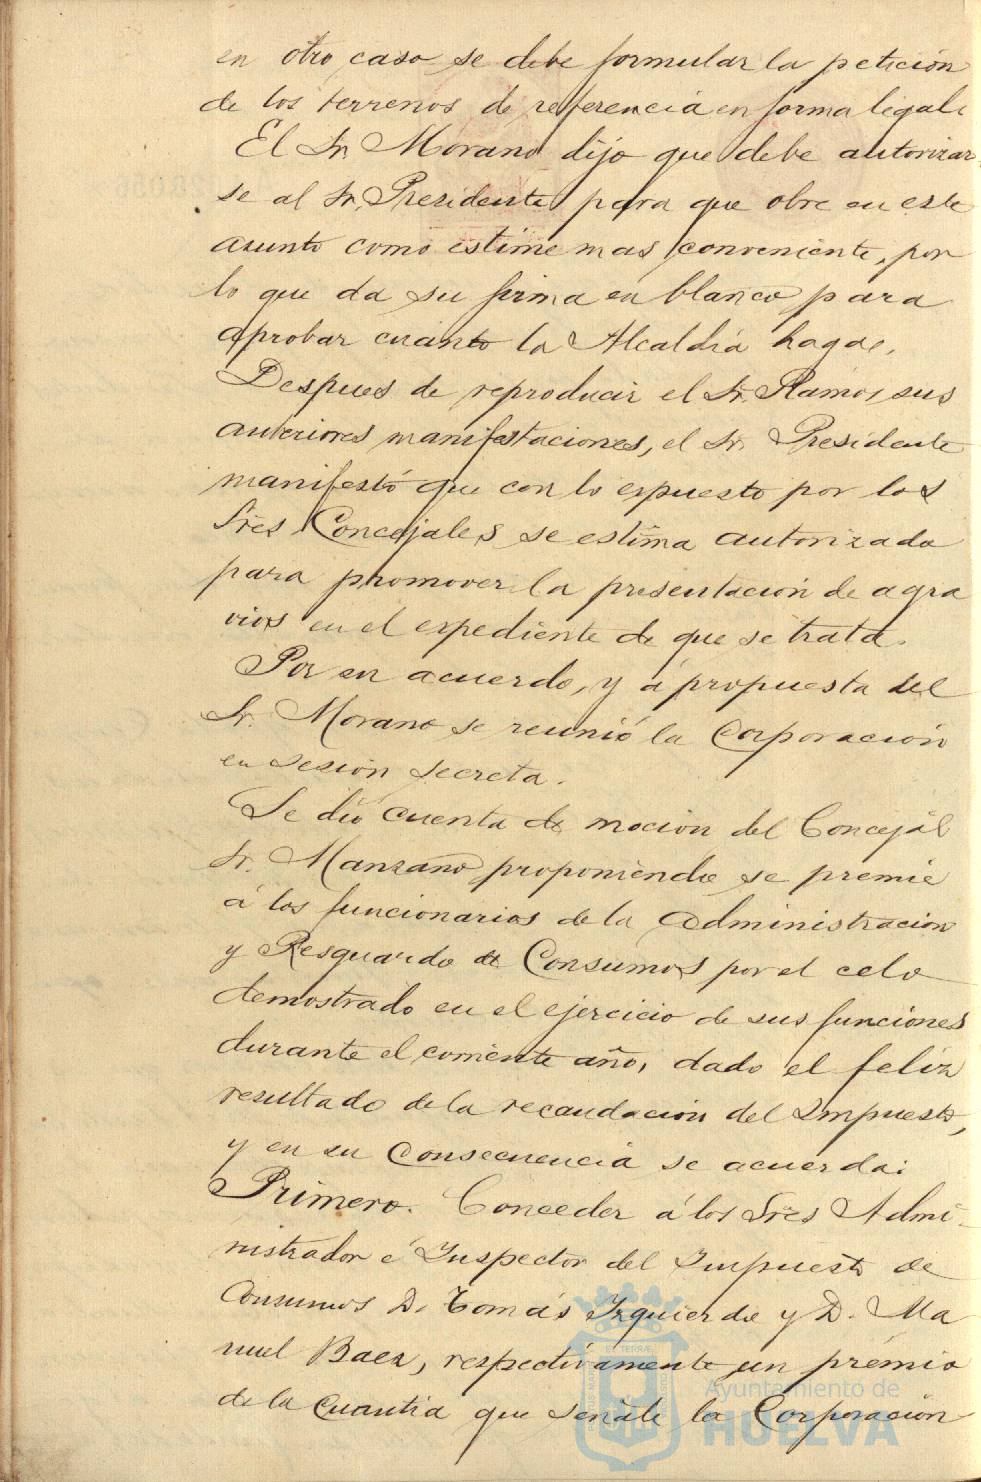 en otro caso se debe formular la petición
de los terrenos de referencia en forma legal.
El Sr. Morano dijo que debe autorizar-
se al Sr. Presidente para que obre en este
asunto como estime mas conveniente, por
lo que da su firma en blanco para
aprobar cuanto la Alcaldía haga.
Despues de reproducir el Sr. Ramos sus
anteriores manifestaciones, el Sr. Presidente
manifestó que con lo espuesto por los
Sres Concejales se estima autorizado
para promover la presentación de agra
vios en el espediente de que se trata.
Por en acuerdo, y á propuesta del
Sr. Morano se reunió la Corporación
en sesión secreta.
Se dio cuenta de moción del Concejal
Sr. Manzano proponiendo se premie
á los funcionarios de la Administracion
y Resguardo de Consumos por el celo
demostrado en el ejercicio de sus funciones
durante el corriente año, dado el feliz
resultado de la recaudación del Impuesto,
y en su consecuencia se acuerda:
Primero. Conceder á los Sres Admi-
nistrador é Inspector del Impuesto de
Consumos D. Tomás Izquierdo y D. Ma
nuel Baez, respectivamente un prémio
de la cuantia que señale la Corporación
Ayuntamiento de
HUELVA